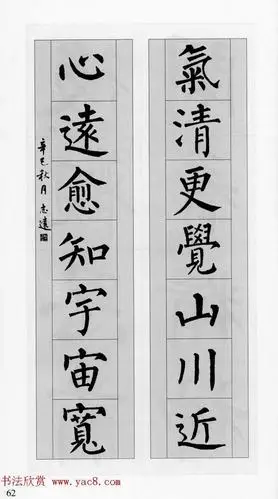 氣清更覺山川近
心遠愈知宇宙寬
辛巳秋月 志遠
书法欣赏 www.yac8.com
62